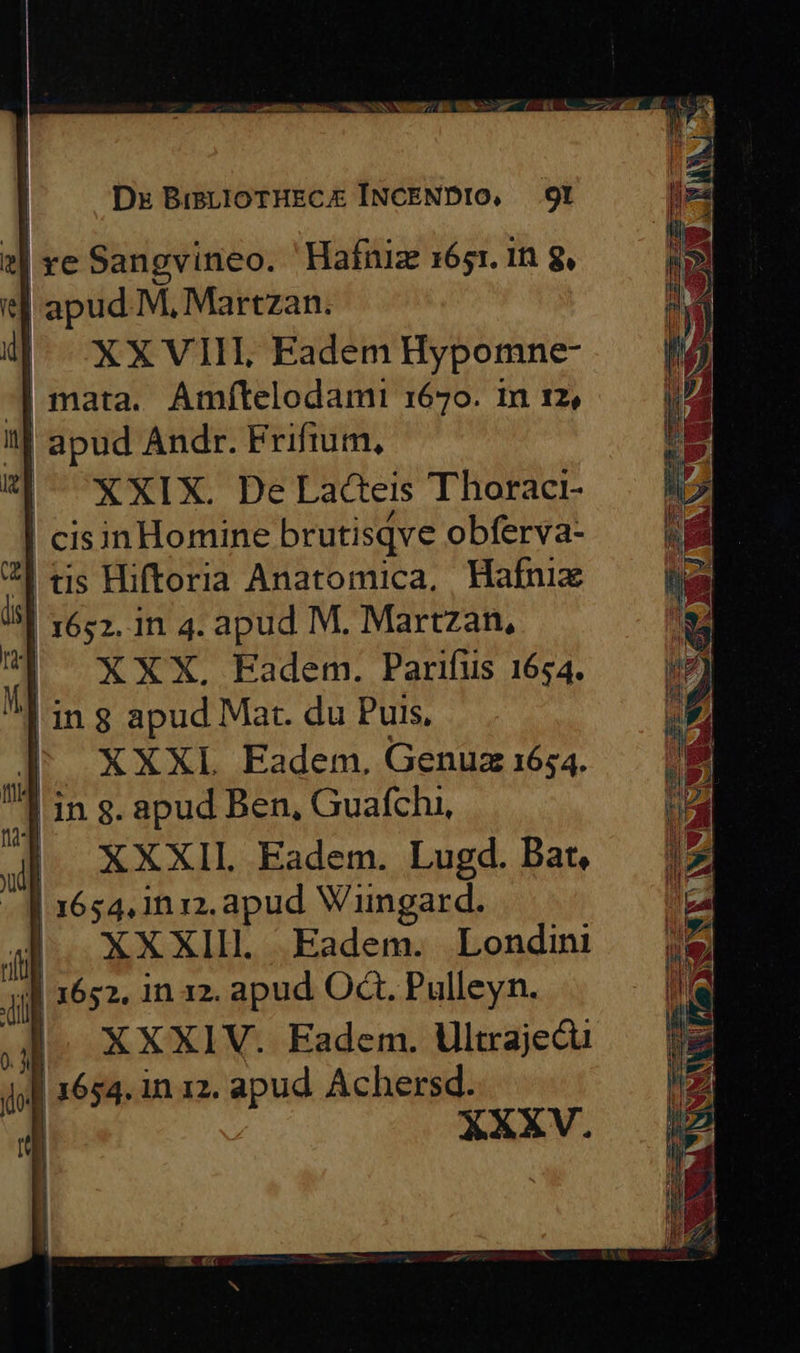 DE BIBLIOTHECÆ INCENDIO, 91
re Sangvineo. Hafniæ 1651. in 8,
apud M, Martzan.
XXVIII, Eadem Hypomne-
mata. Amſtelodami 1670. in 12,
apud Andr. Friſium,
XXIX. De Lacteis Thoraci-
cis in Homine brutisqve obſerva-
tis Hiſtoria Anatomica, Hafniæ
1652. in 4. apud M. Martzan,
XXX, Eadem. Pariſiis 1654.
in 8 apud Mat. du Puis,
XXXI, Eadem, Genuæ 1654.
in 8. apud Ben, Guaſchi,
XXXII, Eadem. Lugd. Bat,
1654, in 12. apud Wiingard.
XXXIII. Eadem. Londini
1652, in 12. apud Oct. Pulleyn.
XXXIV. Eadem. Ultrajecti
1654. in 12. apud Achersd.
XXXV.